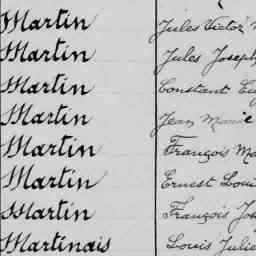 Martin Jules Victor
Martin Jules Joseph
Martin Constant
Martin Jean Marie
Martin François
Martin Ernest Louis
Martin François
Martinais Louis